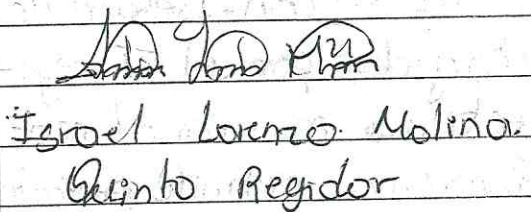 Israel Lorenzo. Molina.
Quinto Regidor